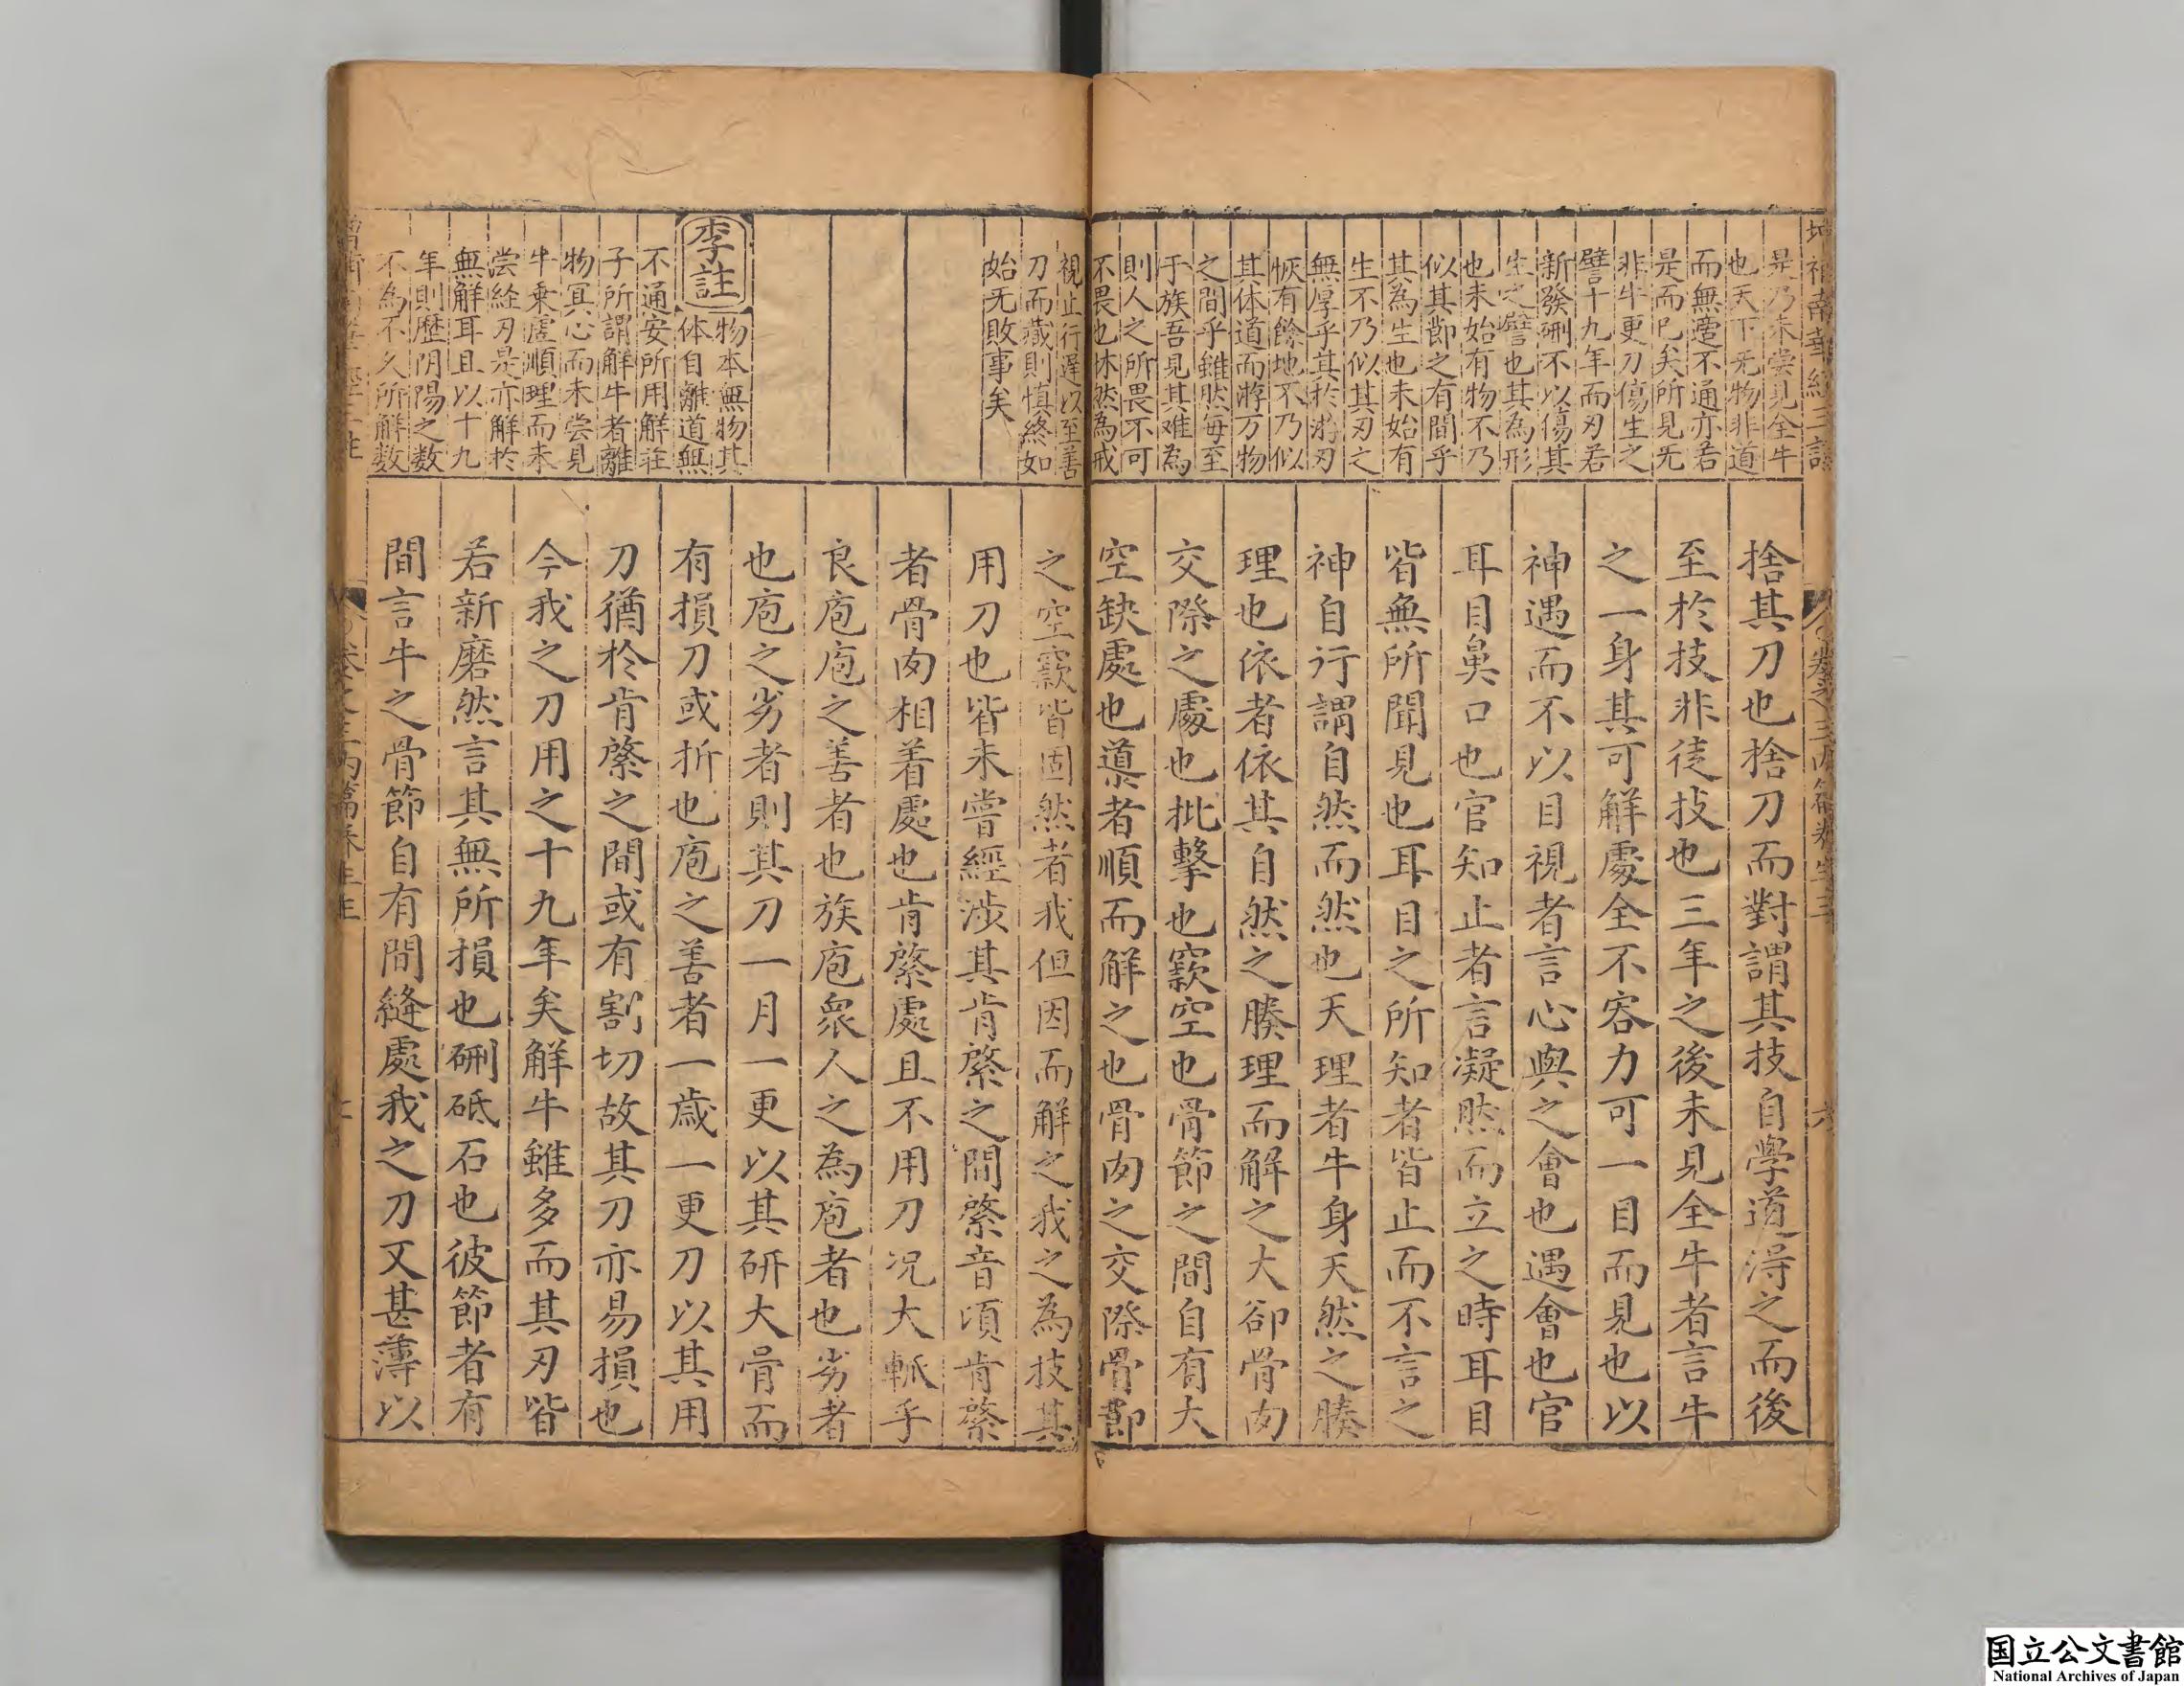 是乃未嘗見全牛
也天下无物非道
而無𨓆不通亦若
是而已矣所見无
非牛更刀傷生之
譬十九年而刃若
新發硎不以傷其
生之譬也其為形
也未始有物不乃
似其節之有間乎
其為生也未始有
生不乃似其刃之
無厚乎其於游刃
恢有餘地不乃似
其体道而游万物
之間乎雖然每至
于族吾見其难為
則人之所畏不可
不畏也怵然為戒
捨其刀也捨刀而對謂其技自學道得之而後
至於技非徒技也三年之後未見全牛者言牛
之一身其可解處全不容力可一目而見也以
神遇而不以目視者言心與之會也遇會也官
耳目鼻口也官知止者言凝然而立之時耳目
皆無所聞見也耳目之所知者皆止而不言之
神自行謂自然而然也天理者牛身天然之腠
理也依者依其自然之腠理而解之大郤骨肉
交際之處也批擊也窾空也骨節之間自有大
空缺處也導者順而解之也骨肉之交際骨節
視止行遲以至善
刀而藏則慎終如
始无敗事矣
李註
物本無物其
体自離道無
不通安所用解莊
子所謂解牛者離
物冥心而未尝見
牛乗虚順理而未
尝経刃是亦解於
無解耳且以十九
年則歷阴陽之数
不為不久所解数
之空窾皆固然者我但因而解之我之為技其
用刀也皆未嘗經涉其肯綮之間綮音頃肯綮
者骨肉相着處也肯綮處且不用刀况大軱乎
良庖庖之善者也族庖衆人之為庖者也劣者
也庖之劣者則其刀一月一更以其研大骨而
有損刀或折也庖之善者一歲一更刀以其用
刀猶於肯綮之間或有割切故其刀亦易損也
今我之刀用之十九年矣解牛雖多而其刃皆
若新磨然言其無所損也硎砥石也彼節者有
間言牛之骨節自有間縫處我之刀又甚薄以
国立公文書館
National Archives of Japan